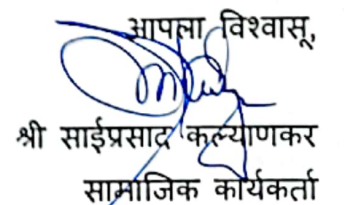 आपला विश्वासू,
श्री साईप्रसाद कल्याणकर
सामाजिक कार्यकर्ता